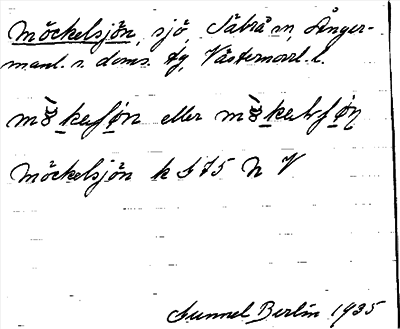 Möckelsjön, sjö, Säbrå sn, Ånger-
manl. s. doms. tg, Västernorrl. l.
eller
Möckelsjön k 575 N V
Gunnel Berlin 1935